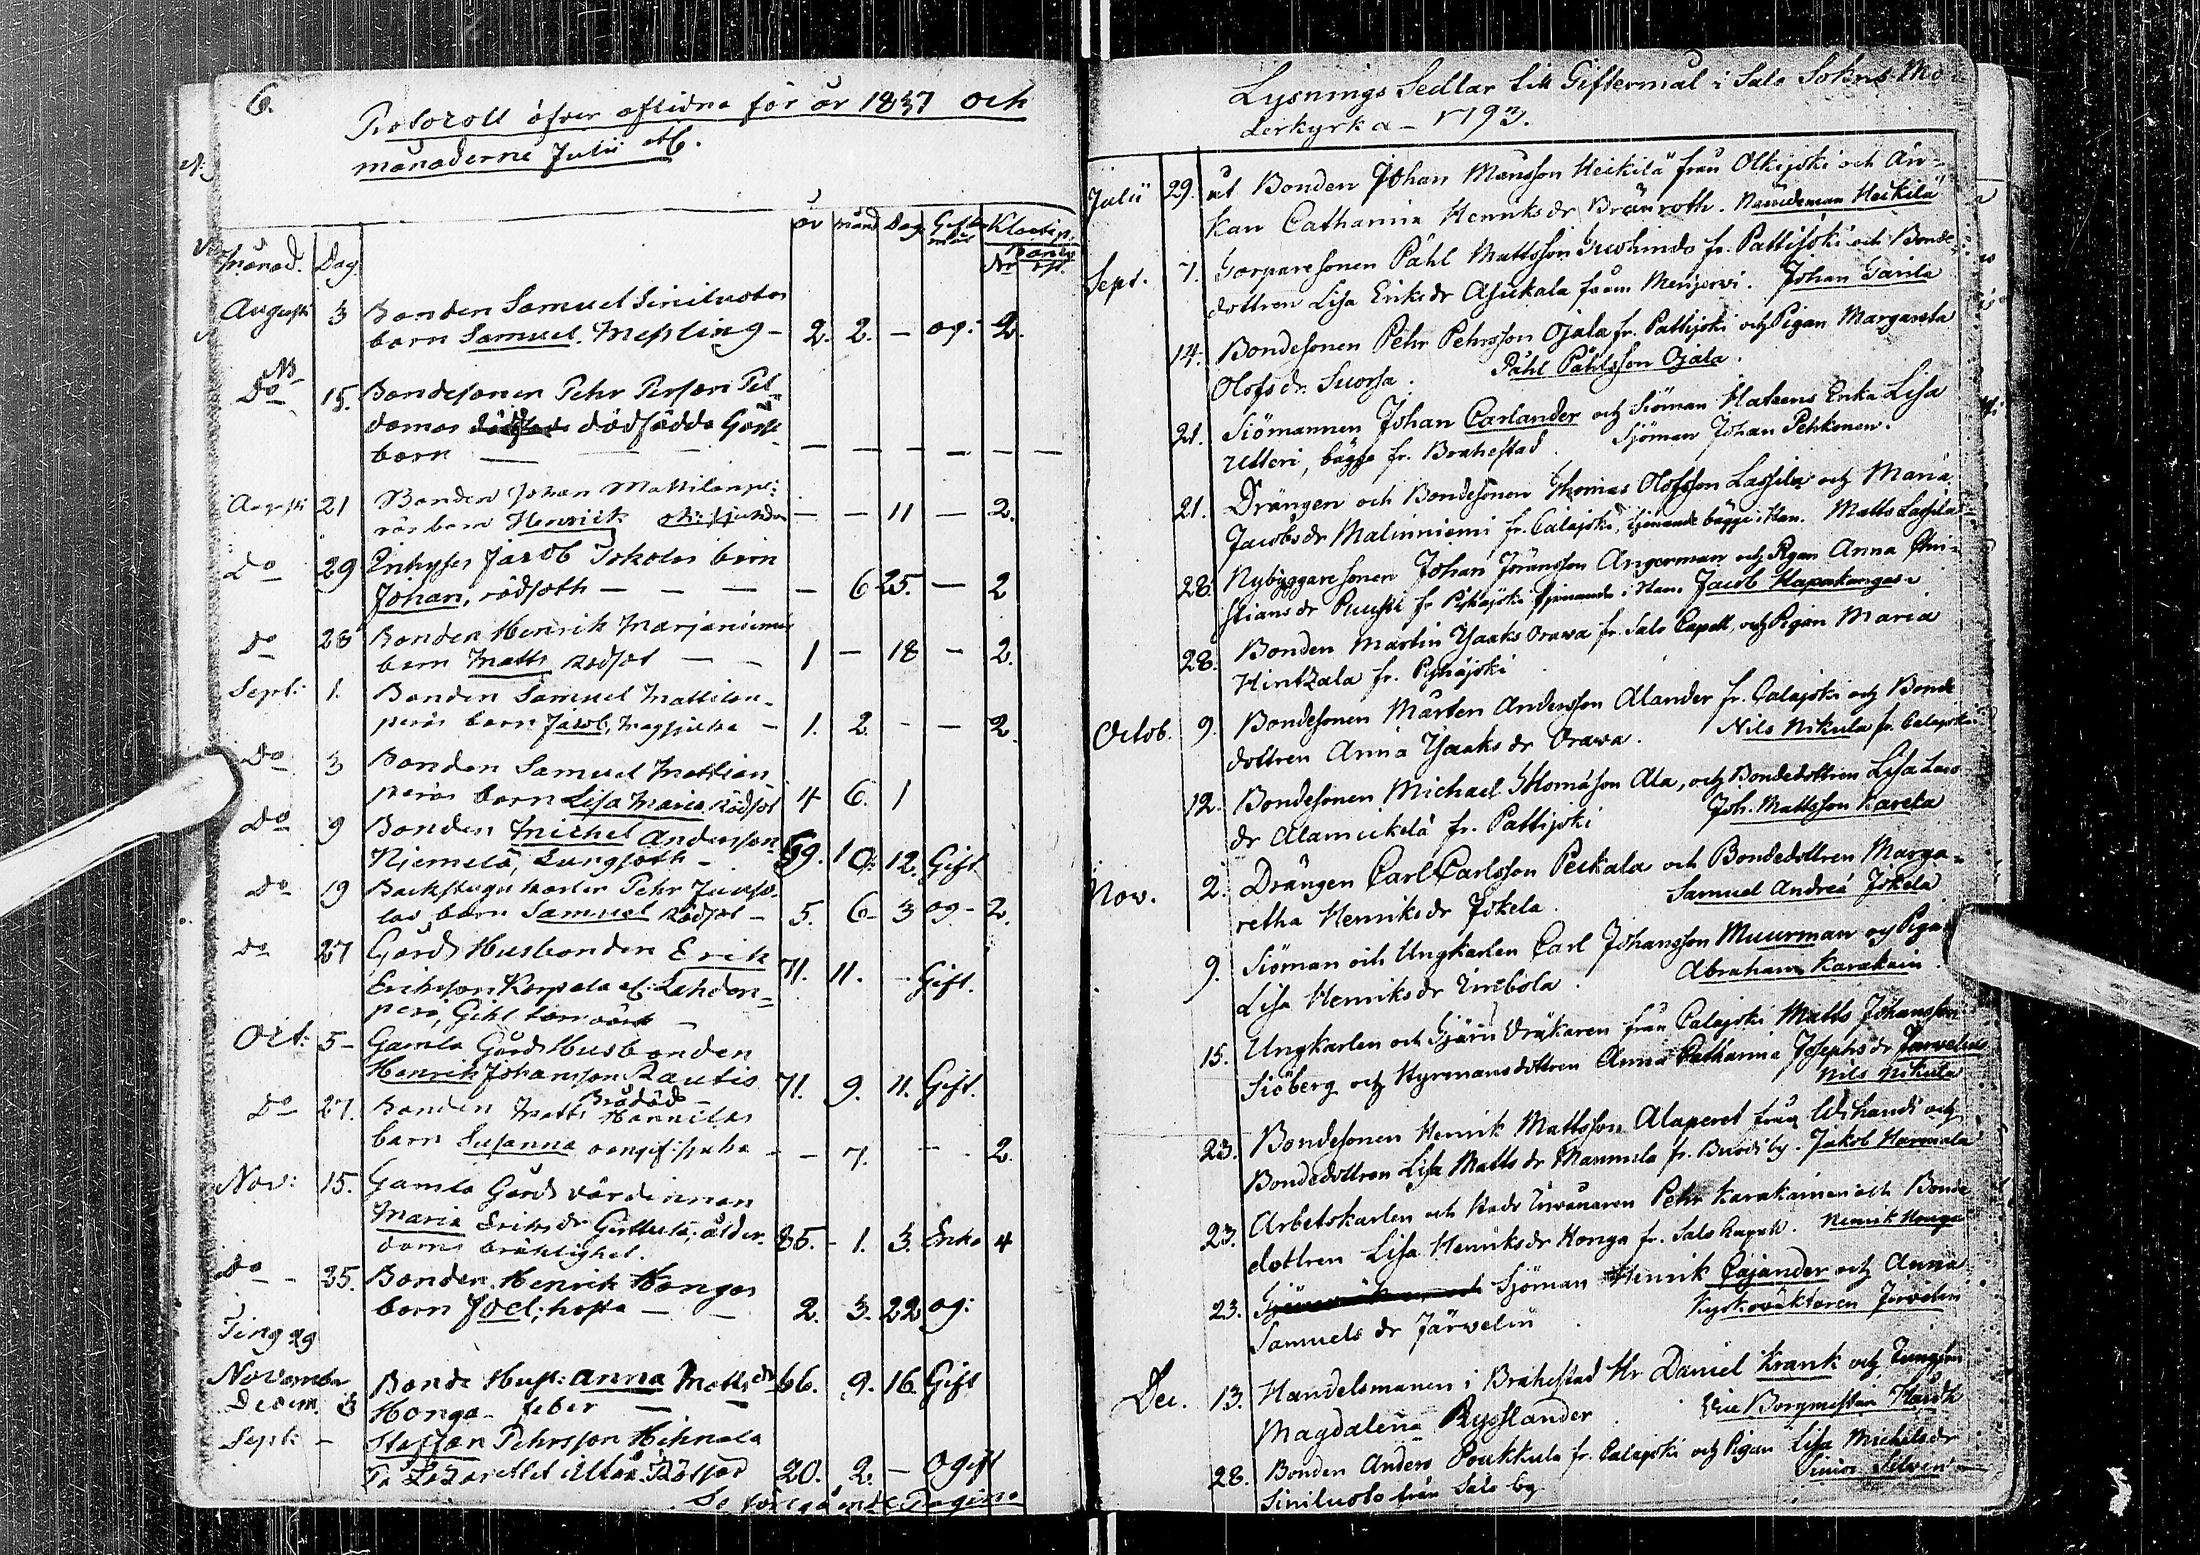 6.
Protocoll öfver aflidna för år 1837 och
månaderne Julii
Månad. Dag år månd Dag Gifte mål
Augusti 3 Bonden Samuel Siniluotos
barn Samuel. Messling - 2. 2. - og: 2.
NB
Do 15. Bondesonen Pehr Persson
dödfödda
barn - - - - - - - -
Augusti 21 Bonden Johan Mattilanpe:
räs barn Henrik - - 11 - 2.
Do 29 Jacob Jokelas barn
Johan, rödsoth - - - - 6 25. - 2
Do 28 Bonden Henrik Marjaniemis
barn Matts Rödsot - - 1 - 18 - 2.
Sept: 1. Bonden Samuel Mattilan-
peräs barn Jacob, - 1. 2. - - 2
Do 3 Bonden Samuel Mattilan
peräs barn Lisa Maria Rödsot 4 6. 1
Do 9 Bonden Michel Andersson
Niemelä, Lungsoth - 59. 10. 12. Gift
Do 19 Backstugu karlen Pehr
las barn Samuel Rödsot - 5. 6 - 3 og - 2.
Do 27 Gårds Husbonden Erik
Eriksson Korpela el. Lahden-
perä, 71. 11. - Gift.
Oct: 5 - Gamla Gårds Husbonden
Henrik Johansson Rautio
Bråddöd - 71. 9. 11. Gift.
Do 27. Bonden Matts Hannilas
barn Susanna - - 7. - - 2.
Nov: 15. Gamla Gårds värdinnan
Maria Eriksdr ålder
doms bräklighet. 85. - 1. 3. Enka 4
Do - 25. Bonden Henrik Hongas
barn Joel, hosta - - 2. 3. 22 og:
Ting 29
November
Decem. 3 Bonde Hust: Anna Mattsdr 66. 9. 16 Gift
Honga - feber - -
Sept: - Staffan Pehrsson Hihnala
På Lazarettet Rötfeb 20. 2. - Ogift
Se föregående Pagina
Lysnings Sedlar till Giftermål i Salo Sokns Mo-
derkyrka - 1793.
Julii 29. ut Bonden Johan Månsson Heikilä från Olkijoki och Än-
kan Catharina Henriksdr Brännroth. Nämdeman Heikilä
Sept. 7. Torparesonen Påhl Mattsson fr. Pattijoki och Bonde-
dottren Lisa Eriksdr Asukala från Merijervi. Johan Gavila
14. Bondesonen Pehr Pehrsson Ojala fr. Pattijoki och Pigan Margareta
Olofsdr. Suorsa. Påhl Påhlsson Ojala.
21. Siömannen Johan Carlander och Siöman Hateens Enka Lisa
Utteri, bägge fr. Brahestad. Sjöman Johan Pehkonen.
21. Drängen och Bondesonen Thomas Olofsson Lassila och Maria
Jacobsdr Malinniemi fr. Calajoki, tjenande bägge i Stan. Matts Lassila
28. Nybyggaresonen Johan Jöransson Angerman och Pigan Anna Chri-
stiansdr Puuska fr. Pyhäjoki tjenande i Stan. Jacob Hapakangas
28. Bonden Martin Ysaaks Orawa fr. Salo Capell, och Pigan Maria
Hintzala fr. Pyhäjoki
Octob. 9. Bondesonen Mårten Andersson Alander fr. Calajoki och Bonde
dottren Anna Ysaaksdr Orawa. Nils Nikula fr. Calajoki
12. Bondesonen Michael Thomasson Ala, och Bondedottren Lisa Lars
dr Alamickelä fr. Pattijoki Joh. Mattsson Kareka
Nov. 2. Drängen Carl Carlsson Peckala och Bondedottren Marga-
retha Henriksdr Jokela. Samuel Andreä Jokela
9. Siöman och Ungkarlen Carl Johansson Muurman och Pigan
Lisa Henriksdr Abraham Karakain
15. Ungkarlen och från Calajoki Matts Johansson
Siöberg och Styrmansdottren Anna Catharina Josephsdr Järvelin
Nils Nikula
23. Bondesonen Henrik Mattsson Alaperet från Wihandi och
Bondedottren Lisa Mattsdr Mammela fr. by. Jakob Hannila
23. Arbetskarlen och Stads Pehr Karakainen och Bonde
dottren Lisa Henriksdr Honga fr. Salo Capell. Henrik Honga
23. Sjöman Henrik Cajander och Anna
Samuelsdr Järwelin Kyrkowäktaren Järvelin
Dec. 13. Handelsmannen i Brahestad Hr Daniel Krank och Jungfru
Magdalena Rysslander. Vice Borgmestare
28. Bonden Anders Poukkula fr. Calajoki och Pigan Lisa Michelsdr
Siniluoto från Salo by.